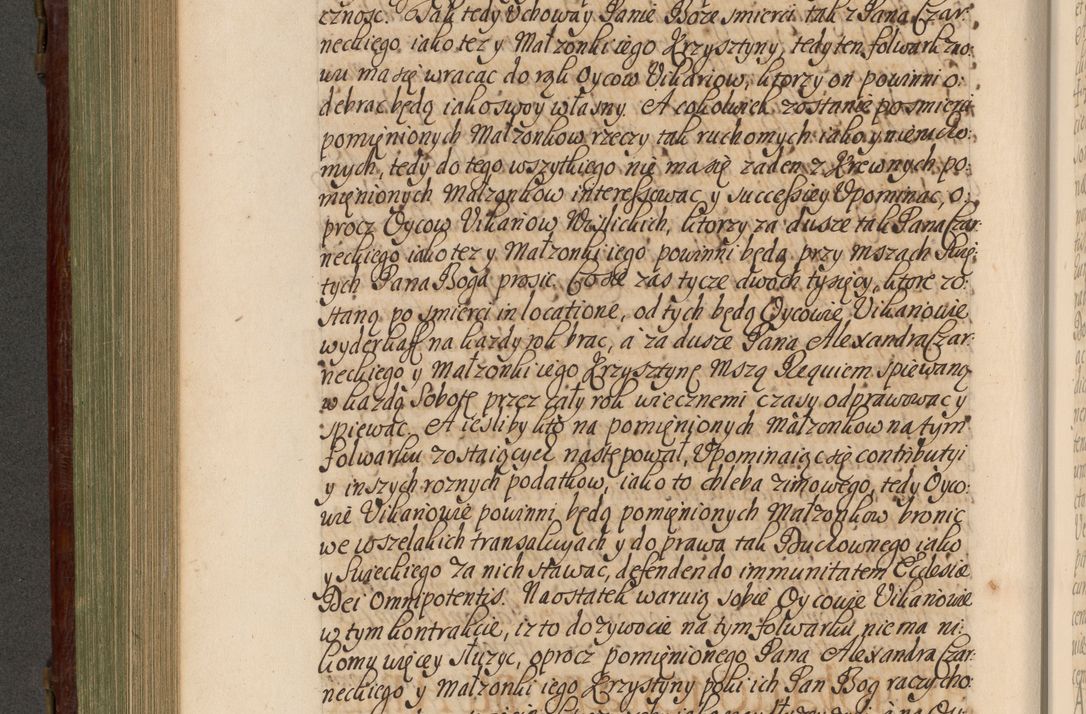 cznosc. Tak tedy Uchoway Panie Boze smierci tak z Pana Czar:
neckiego iako tez y Małzonki iego Krzysztyny, tedy ten folwark zno:
wu ma się wracac do rąk Oycow Vikariow, ktorzy on powinni o:
debrac będą iako swoy własny. A cokolwiek zostanie po smierci
pomięnionych Małzonkow rzeczy tak ruchomych iako y nierucho:
mych, tedy do tego wszytkiego nie ma się zaden z Krewnych po:
mięnionych Małzonkow interessowac y successiey Upominac, o:
procz Oycow Vikariow Wislickich, ktorzy za dusze tak Pana Czar:
neckiego iako tez y Małzonki iego powinni będą przy mszach Swię:
tych Pana Boga prosic. Co się zas tycze dwoch tysięcy, ktore zo:
staną po smierci in locatione, od tych będą Oycowie Vikariowie
wyderkaff na kazdy rok brac, a za dusze Pana Alexandra Czar:
neckiego y Małzonki iego Krzysztynę Mszą Requiem spiewaną
w kazdą Sobotę przez cały rok wiecznemi czasy odprawowac y
spiewac. A iesliby kto na pomięnionych Małzonkow na tym
folwarku zostaiącycħ następował, Upominaiąc się contributyi
y inszych roznych podatkow, iako to chleba zimowego, tedy Oyco:
wie Vikariowie powinni będą pomięnionych Małzonkow bronic
we wszelakich transakcyach y do prawa tak Duchownego iako
y Swieckiego za nich stawac, defendendo immunitatem Ecclesiæ
Dei Omnipotentis. Naostatek waruią sobie Oycowie Vikariowie
w tym kontrakcie, iz to dozywocie na tym folwarku nie ma ni:
komu więcey słuzyc, oprocz pomięnionego Pana Alexandra Czar:
neckiego y Małzonki iego Krzystyny poki ich Pan Bog raczy cho: